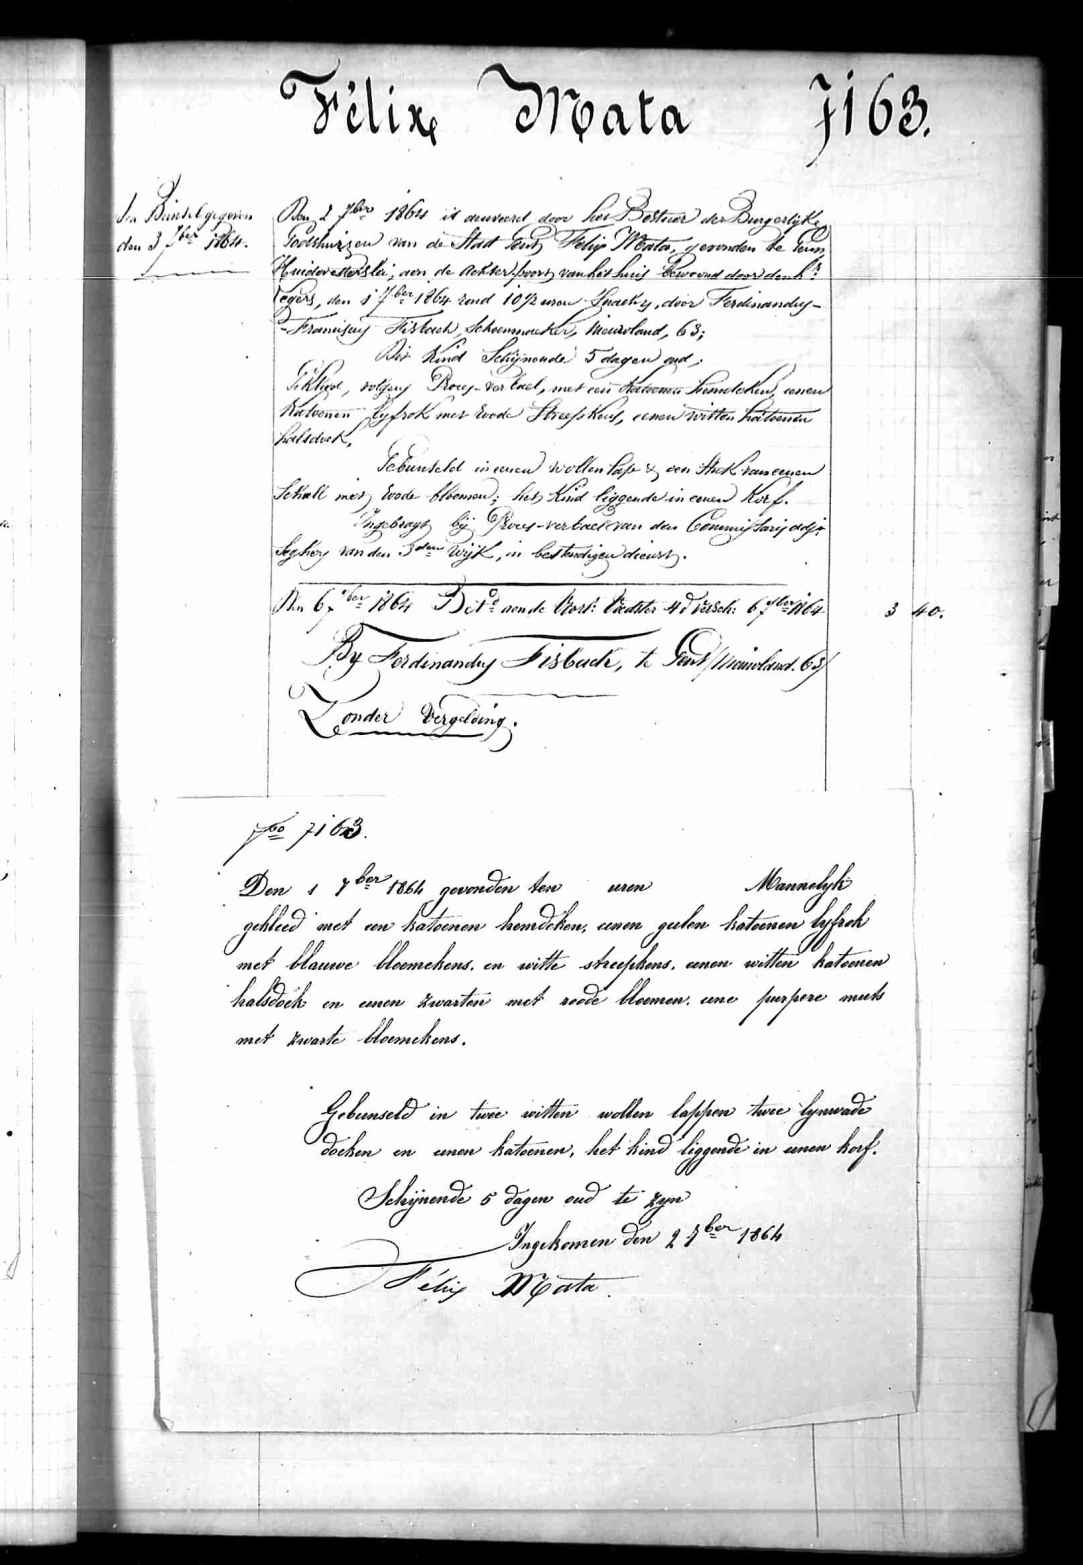 Félix Mata 7163.
den 3 7ber 1864.
Den 2 7ber 1864 is aenveerd door het Bestuer der Burgerlyke
Godshuizen van de Stad Gent, Felix Mata, gevonden te Gent
aen de achterpoort van het huis bewoond door den hr
den 1 7ber 1864 rond 10½ uren door Ferdinandus-
-Franciscus Fisbach, Schoenmaeker, Nieuwland, 63;
Dit Kind Schijnende 5 dagen oud;
Gekleed, volgens Proces-verbael, met een Katoenen hemdeken, eenen
Katoenen lyfrok met roode Streepkens, eenen witten katoenen
halsdoek,
Gebunseld in eenen wollen lap & een Stuk van eenen
Schall met roode bloemen; het Kind liggende in eenen Korf.
Ingebragt bij Proces-verbael van den Commissaris adjt
Seghers van den 3den Wijk, in bestendigen dienst.
Den 6 7ber 1864 aen de 6 7ber 1864 3 40.
By Ferdinandus Fisbach, te Gent /Nieuwland. 63/
Zonder Vergelding.
No 7163.
Den 1 7ber 1864 gevonden ten uren Mannelyk
gekleed met een katoenen hemdeken, eenen geelen katoenen lyfrok
met blauwe bloemekens. en witte streepkens. eenen witten katoenen
halsdoek en eenen zwarten met roode bloemen. eene purpere muts
met zwarte bloemekens.
Gebunseld in twee witten wollen lappen twee lynwade
doeken en eenen katoenen, het kind liggende in eenen korf.
Schijnende 5 dagen oud te zyn
Ingekomen den 2 7ber 1864
Félix Mata.